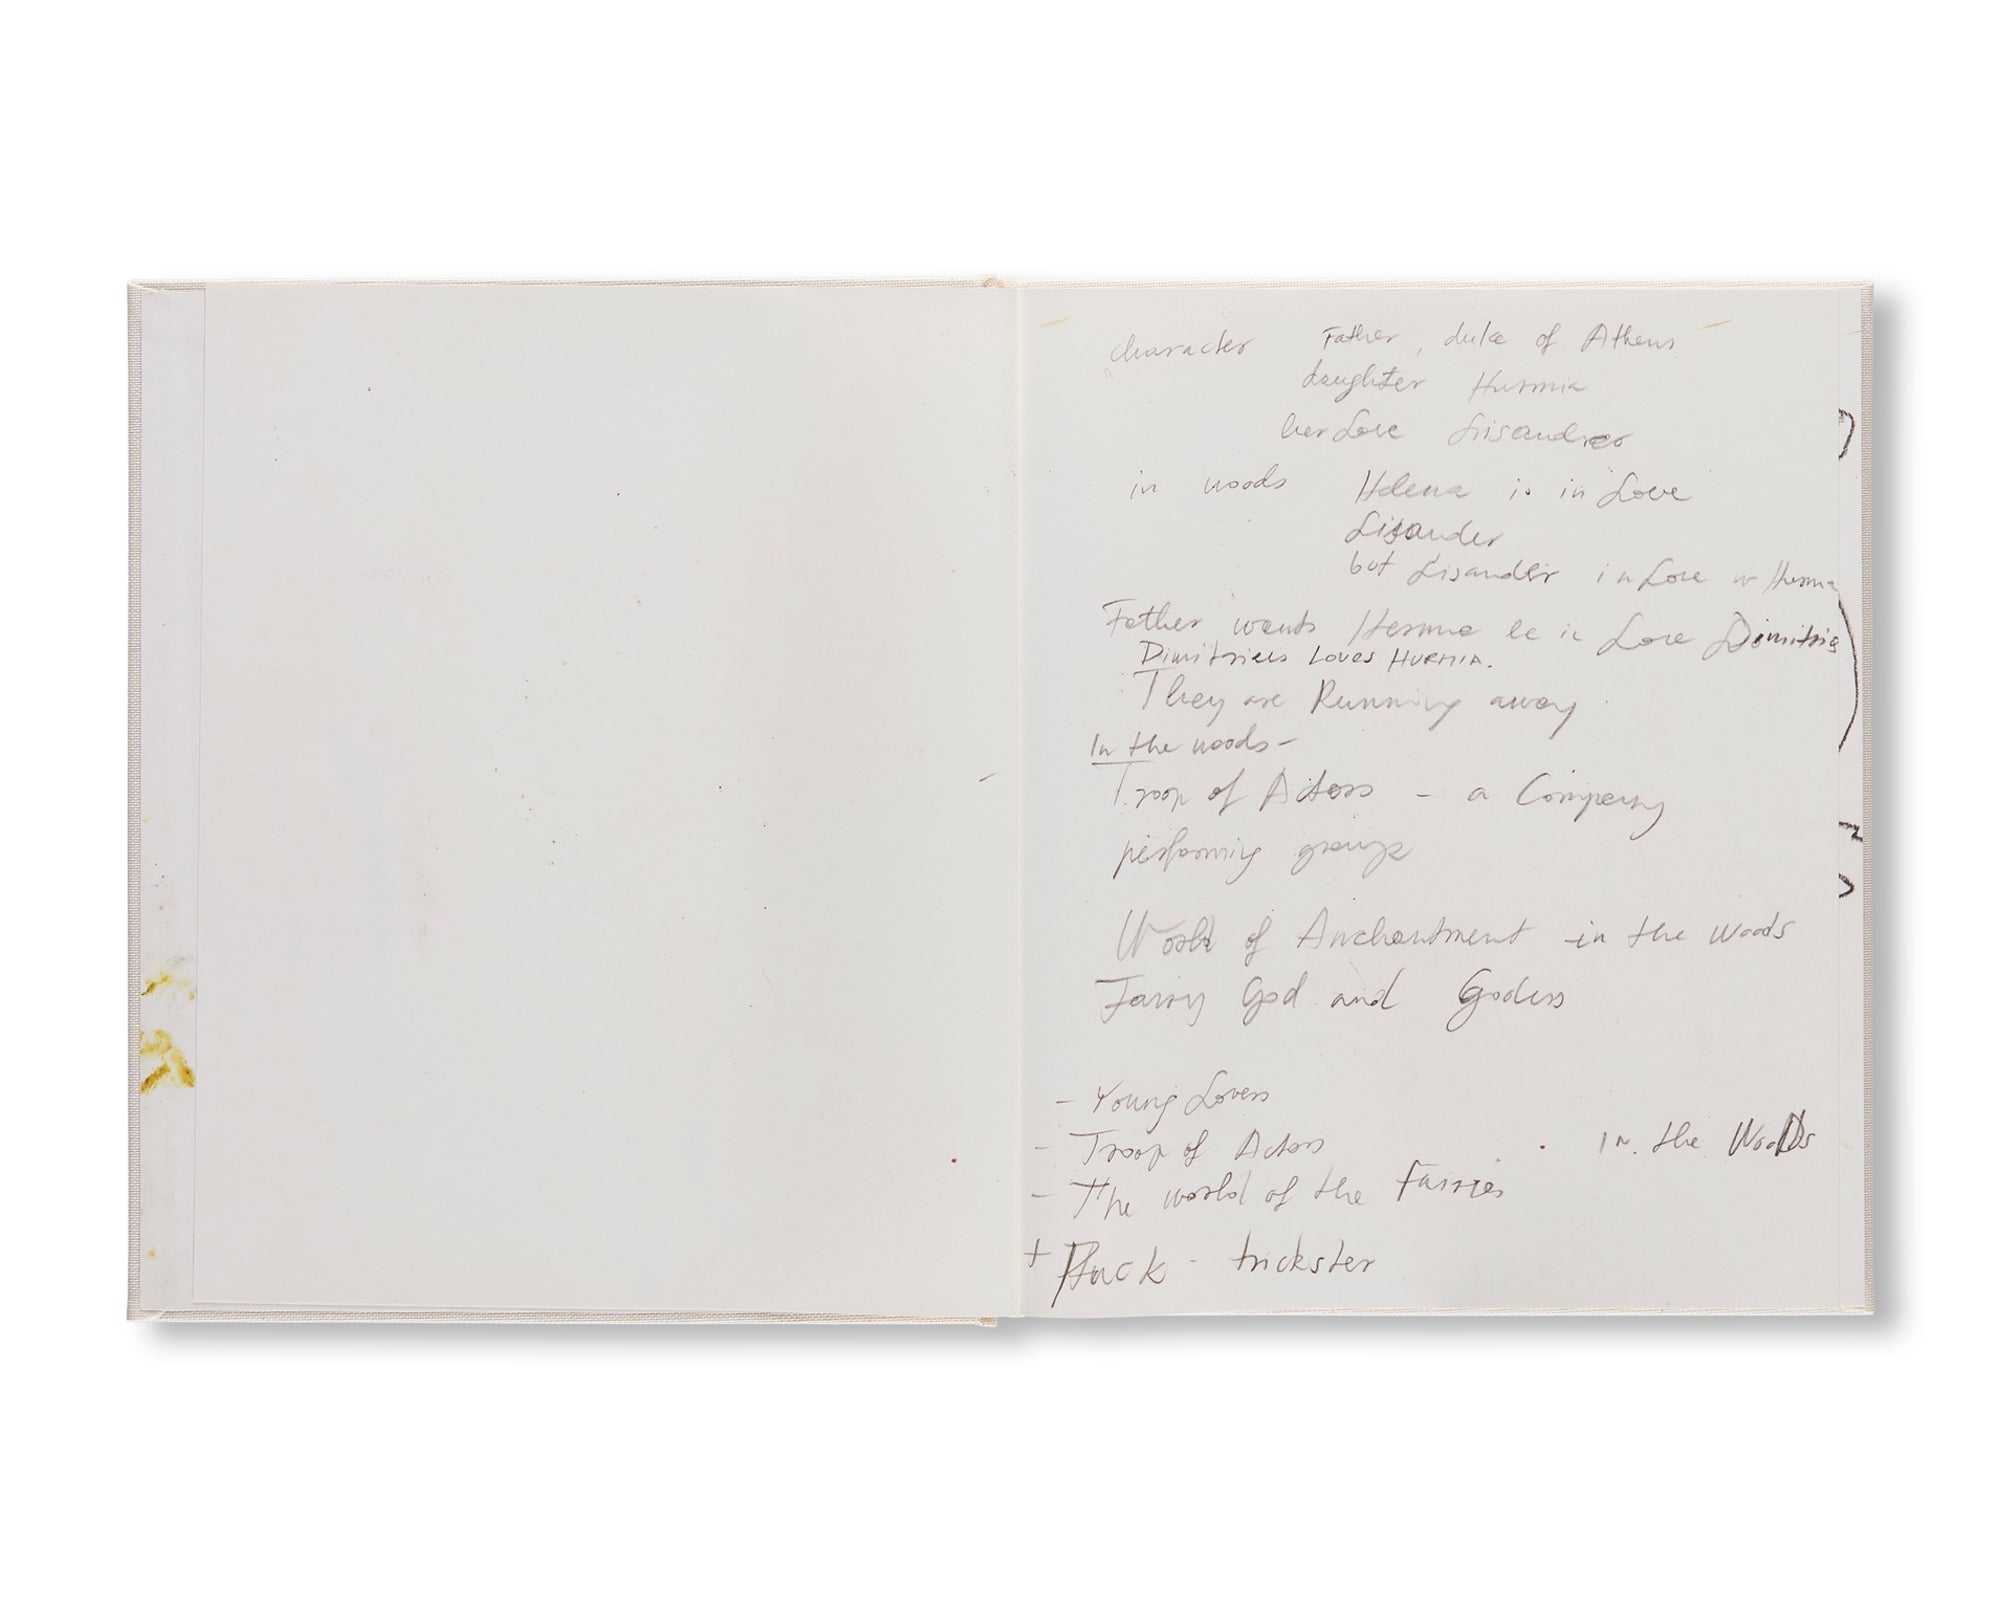 character Father, duke of Athens
daughter Hurmia
her Love Lisandreo
in woods Helena is in Love
Lisander
but Lisander in Love w Hurmia
Father wants Hermia be in Love Dimitrie
Dimitrieus Loves HURMIA.
They are Running away
In the woods -
Troop of Actors - a Company
performing groups
World of Anchantment in the woods
Fairy God and Godess
- Young Lovers
- Troop of Actors in the Woods
- The world of the Fairies
+ Puck - trickster